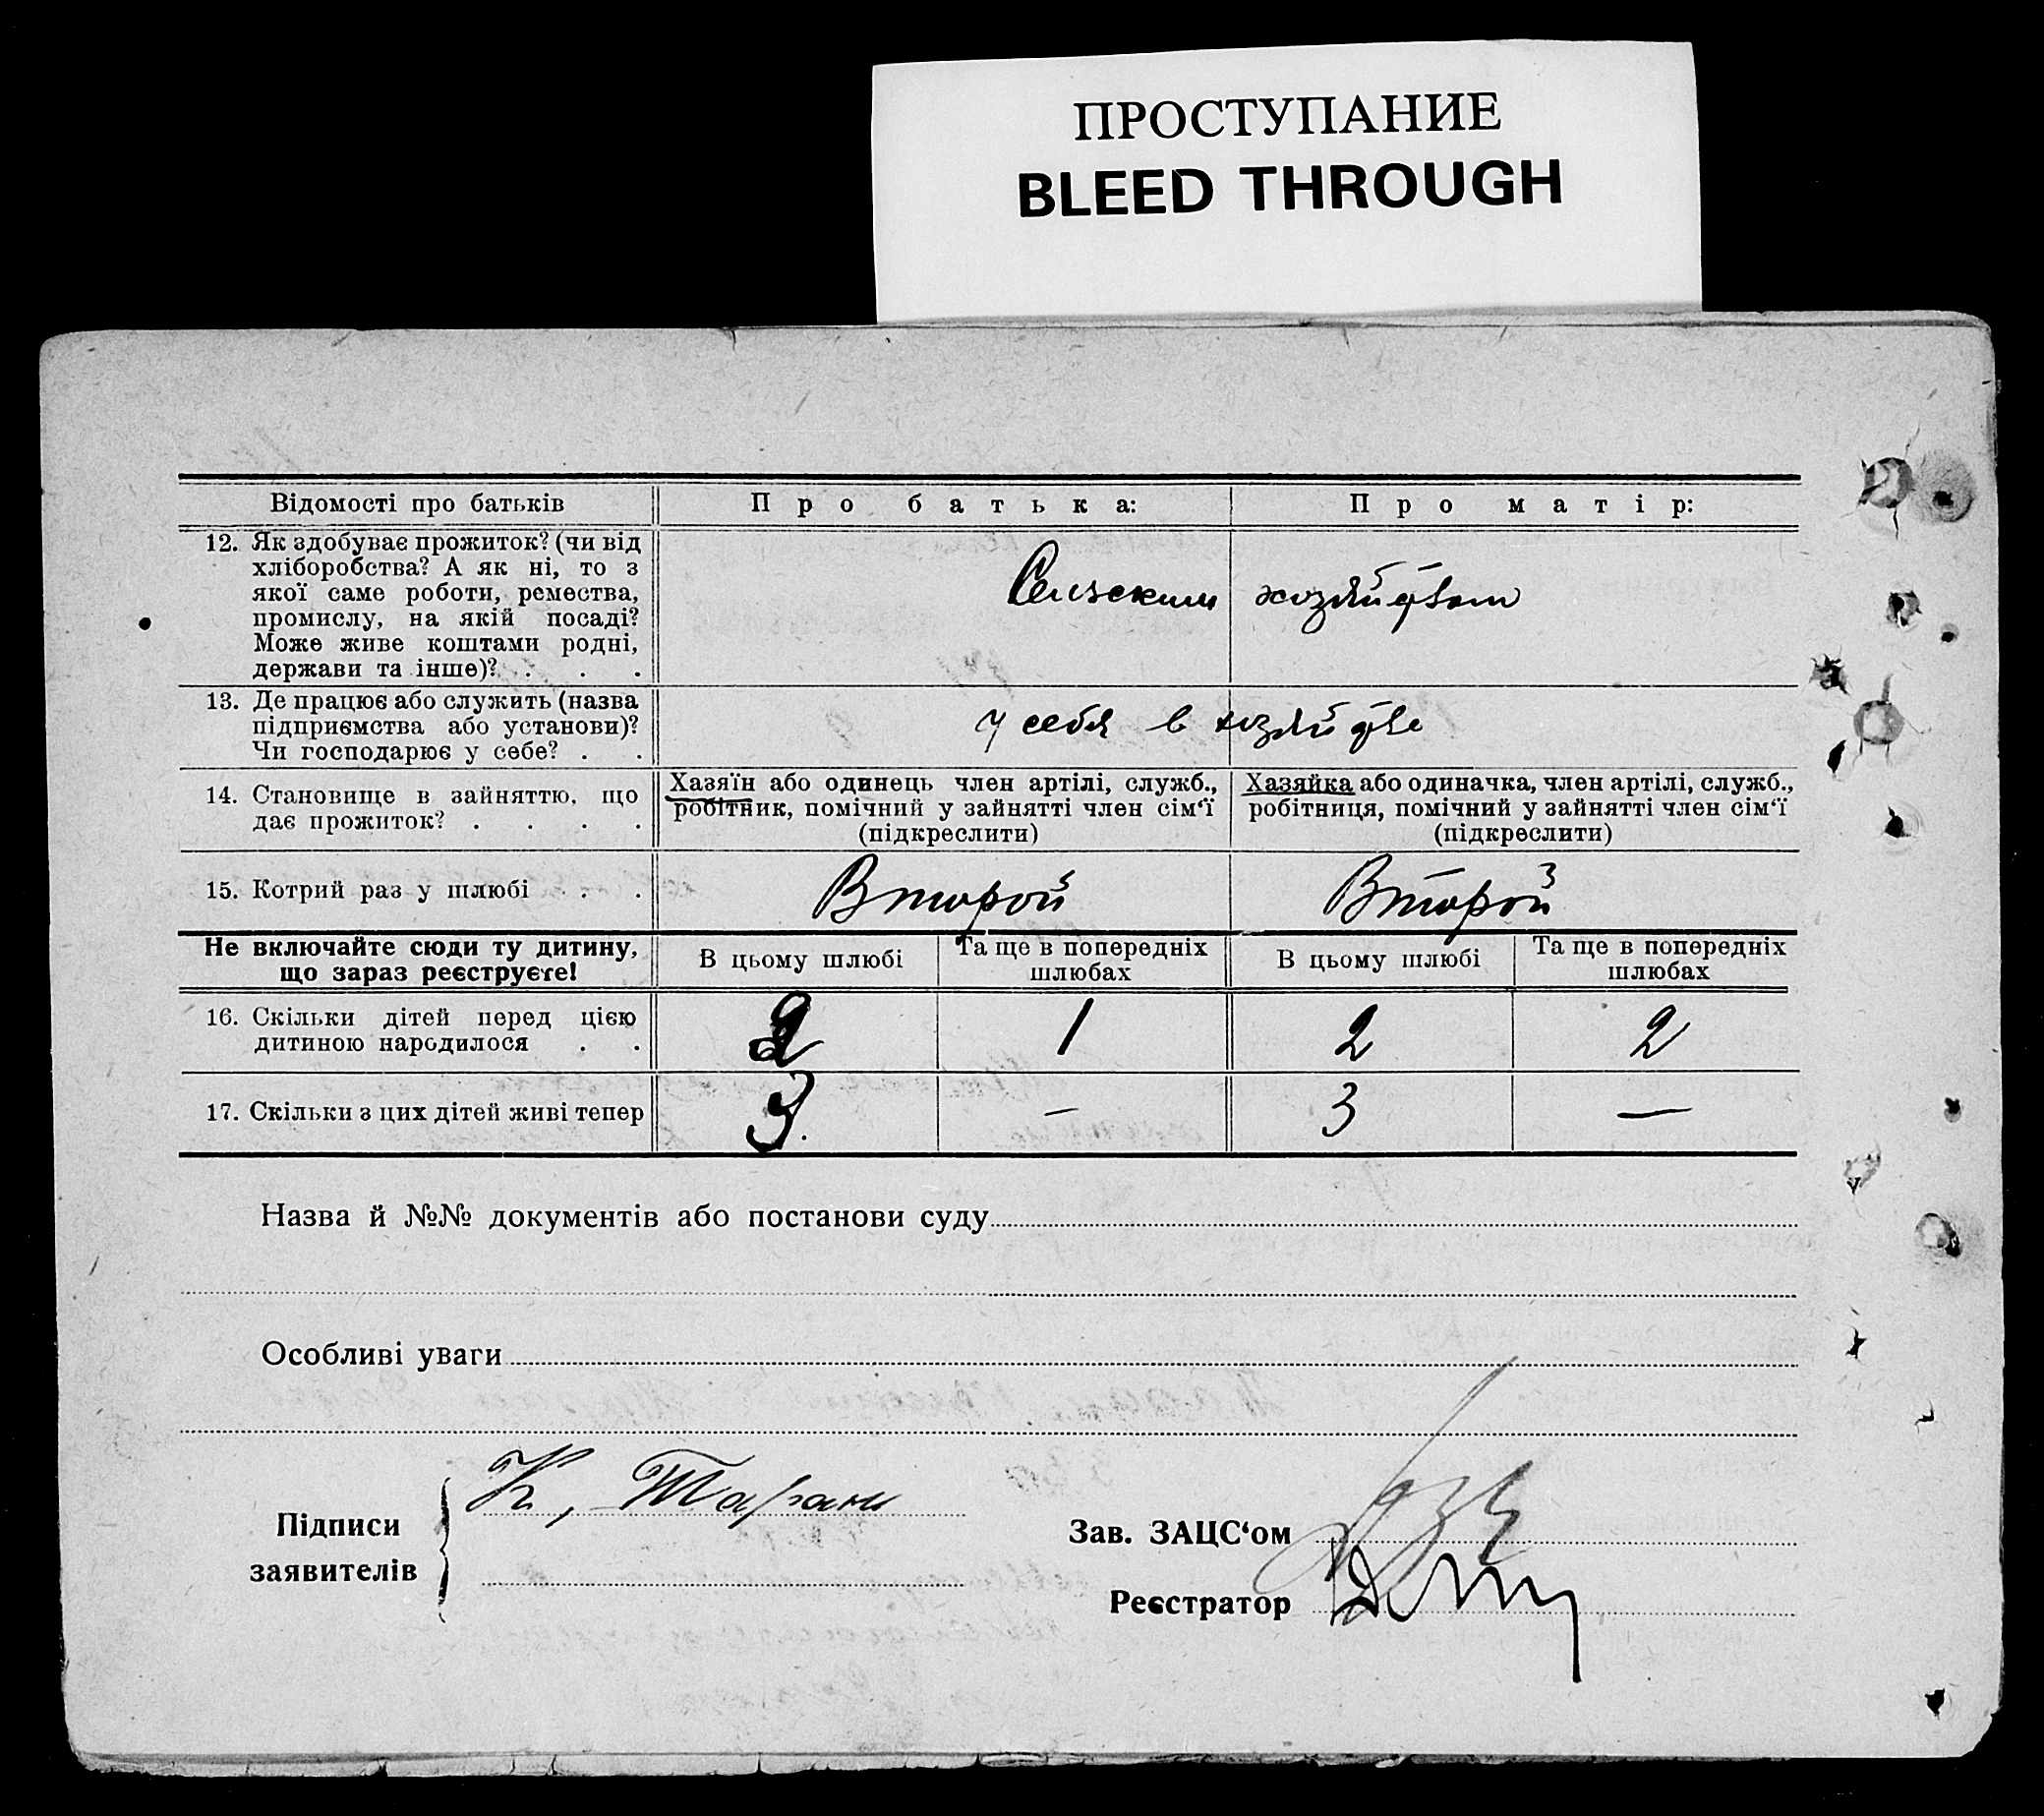 ПРОСТУПАНИЕ
BLEED THROUGH
Відомості про батьків
Про батька:
Про матір:
12. Як здобуває прожиток? (чи від
хліборобства? А як ні, то з
якої саме роботи, ремества,
промислу, на якій посаді?
Може живе коштами родні,
держави та інше)? . . .
Сельским хозяйством
13. Де працює або служить (назва
підприємства або установи)?
Чи господарює у себе? . .
у себя в хозяйстве
14. Становище в зайняттю, що
дає прожиток? . . . .
Хазяїн або одинець член артілі, служб.,
робітник, помічний у зайнятті член сім‘ї
(підкреслити)
Хазяйка або одиначка, член артілі, служб.,
робітниця, помічний у зайнятті член сім‘ї
(підкреслити)
15. Котрий раз у шлюбі . .
Второй
Второй
Не включайте сюди ту дитину,
що зараз реєструєте!
В цьому шлюбі
Та ще в попередніх
шлюбах
В цьому шлюбі
Та ще в попередніх
шлюбах
16. Скільки дітей перед цією
дитиною народилося . .
2
1
2
2
17. Скільки з цих дітей живі тепер
3.
—
3
—
Назва й №№ документів або постанови суду
Особливі уваги
Підписи
заявителів
К, Таран
Зав. ЗАЦС‘ом
Реєстратор